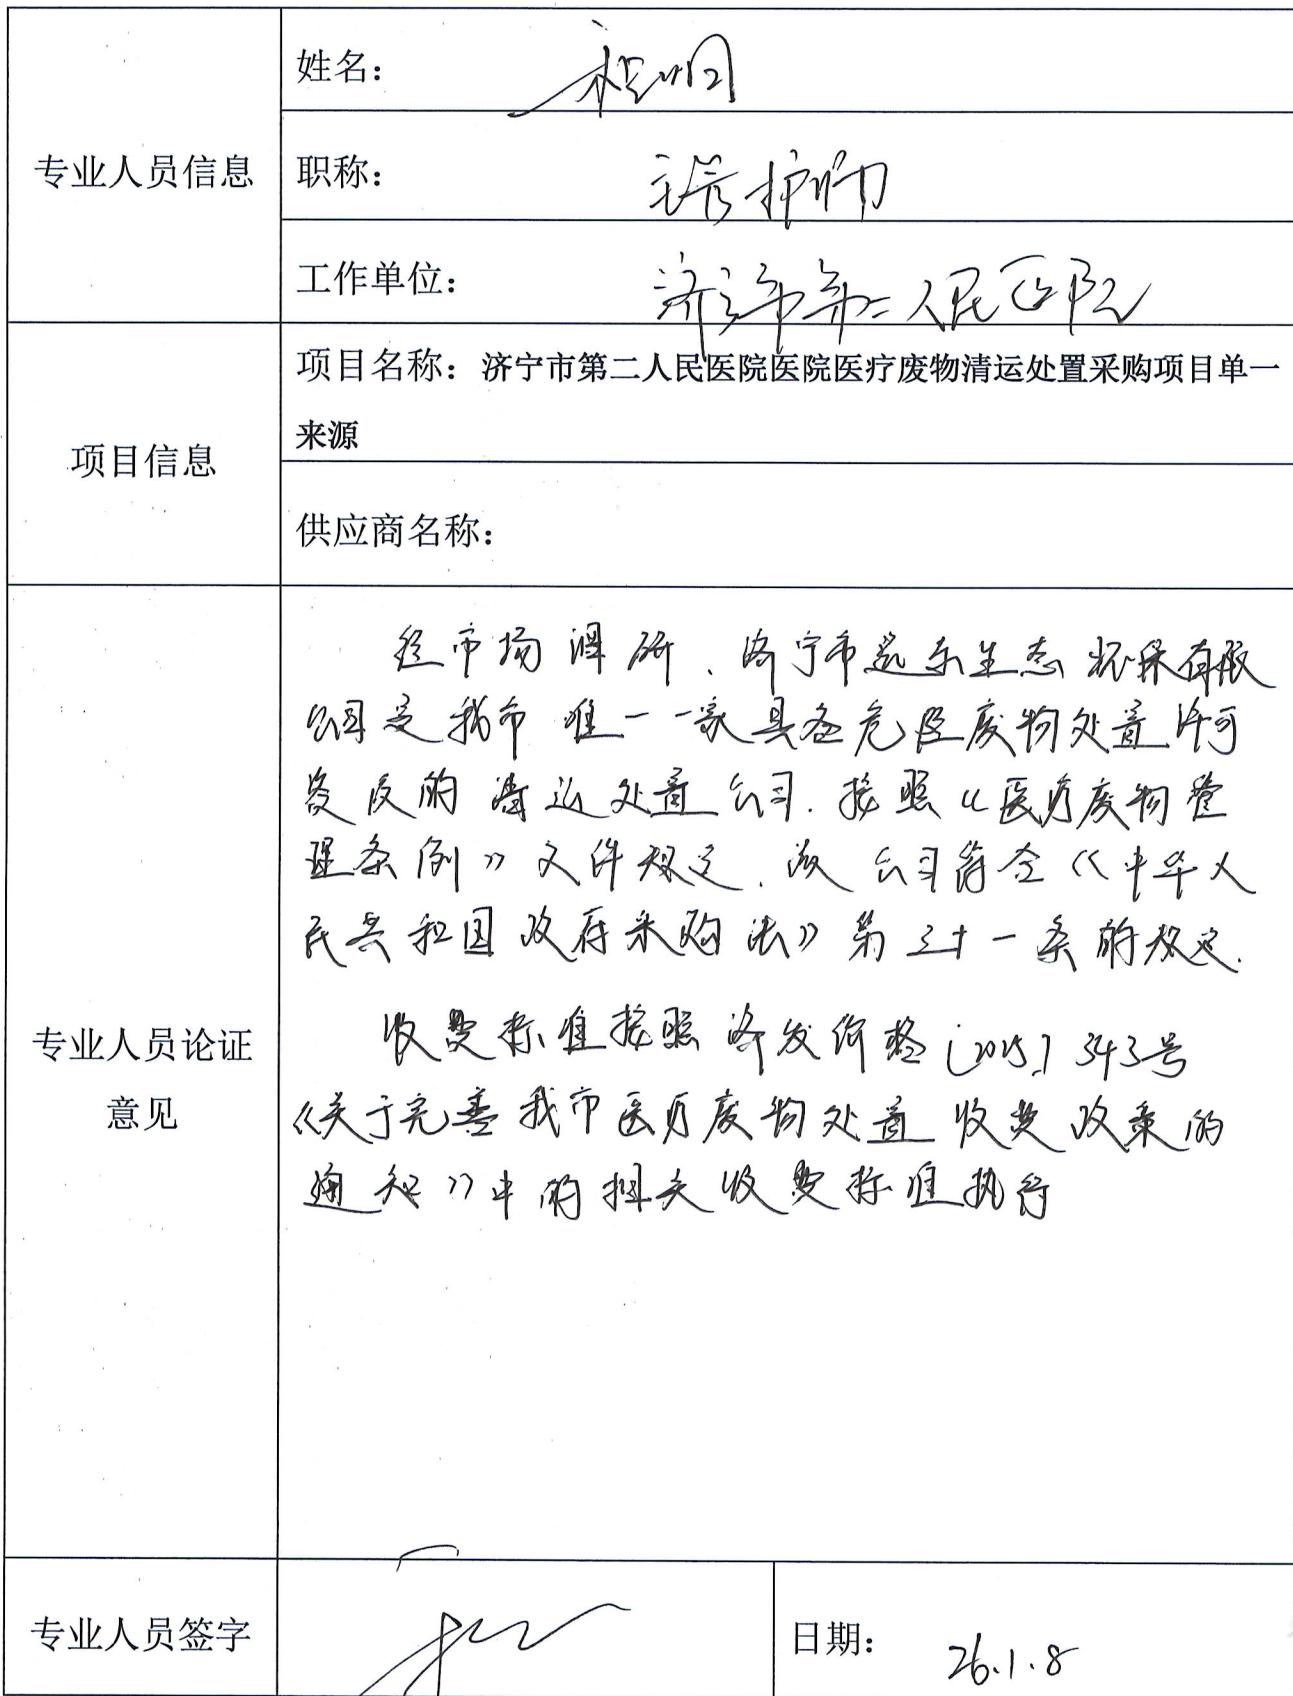 姓名：
专业人员信息
职称：主管护师
工作单位：济宁市第二人民医院
项目名称：济宁市第二人民医院医院医疗废物清运处置采购项目单一
来源
项目信息
供应商名称：
经市场调研、济宁市远东生态环保有限
公司是我市唯一一家具备危险废物处置许可
资质的清运处置公司.按照《医疗废物管
理条例》文件规定.该公司符合《中华人
民共和国政府采购法》第三十一条的规定.
收费标准按照济发价格[2015]343号
《关于完善我市医疗废物处置收费政策的
通知》中的相关收费标准执行
专业人员论证
意见
专业人员签字
日期：26.1.8